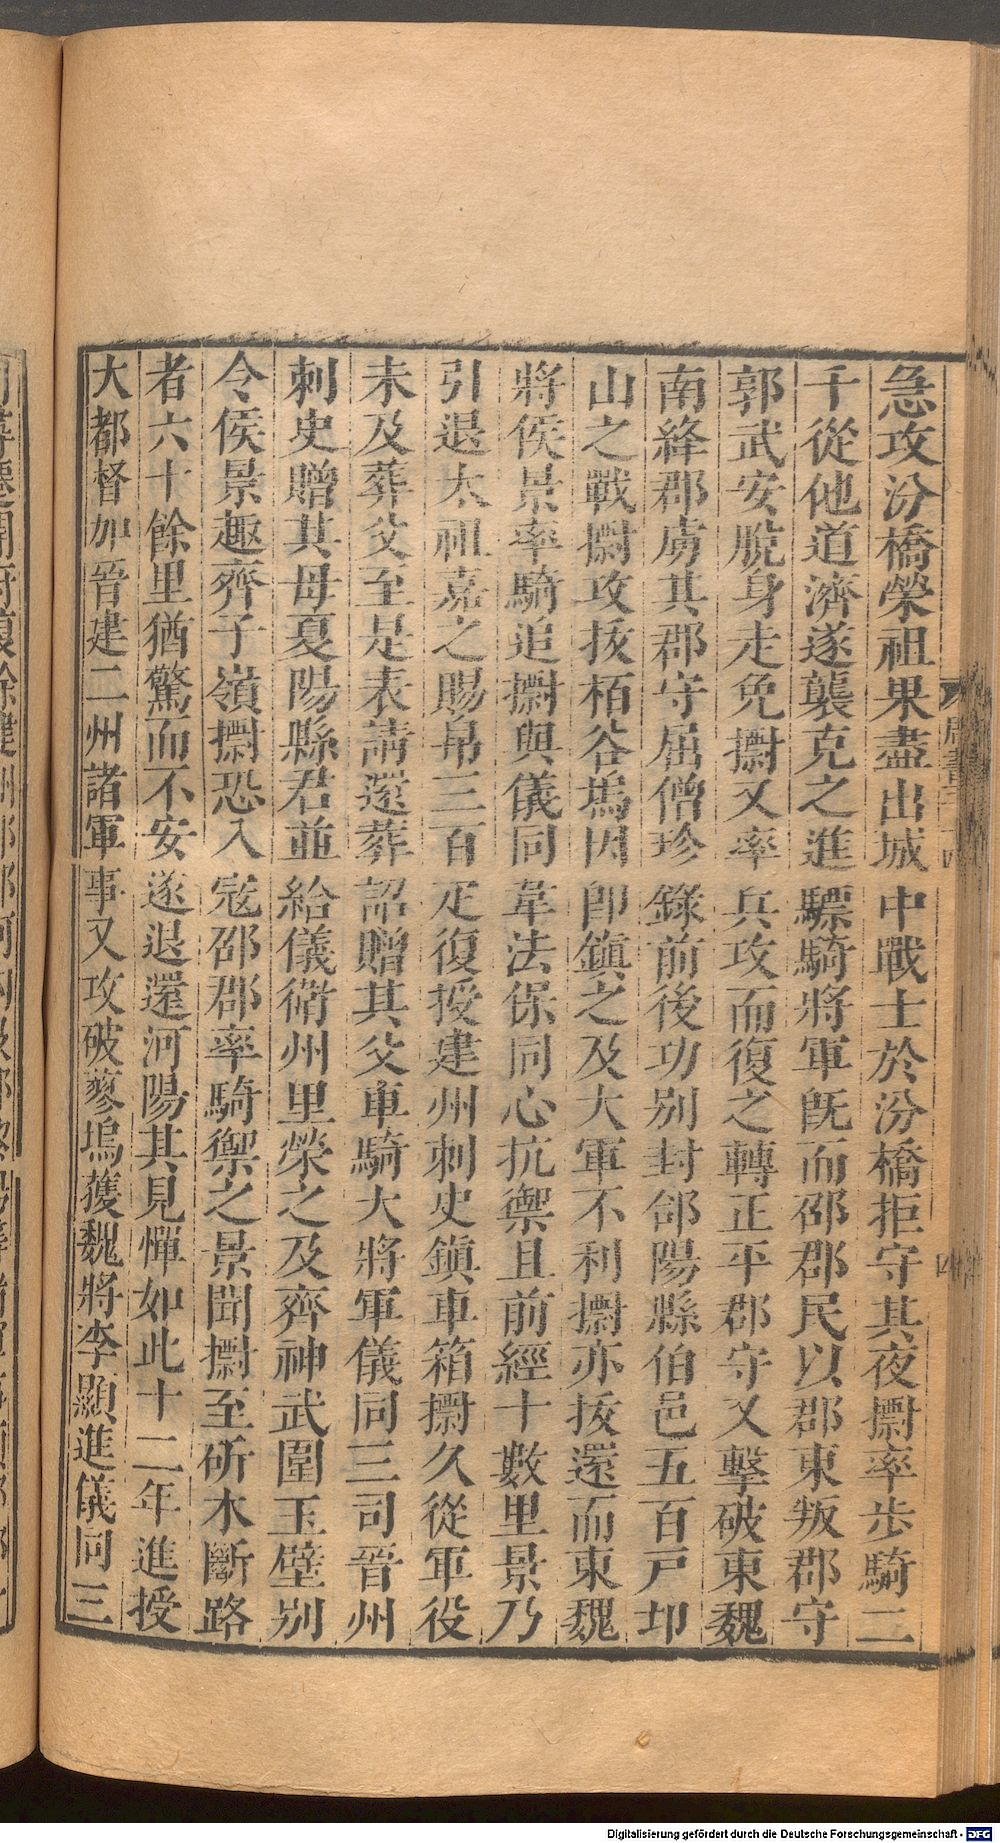 急攻汾橋榮祖果盡出城中戰士於汾橋拒守其夜㯹率步騎二
千從他道濟遂襲克之進驃騎將軍旣而邵郡民以郡東叛郡守
郭武安脫身走免㯹又率兵攻而復之轉正平郡守又擊破東魏
南絳郡虜其郡守屈僧珍錄前後功別封郃陽縣伯邑五百戸邙
山之戰㯹攻拔栢谷塢因卽鎭之及大軍不利㯹亦拔還而東魏
將侯景率騎追㯹與儀同韋法保同心抗禦且前經十數里景乃
引退太祖嘉之賜帛三百疋復授建州刺史鎭車箱㯹久從軍役
未及葬父至是表請還葬詔贈其父車騎大將軍儀同三司晉州
刺史贈其母夏陽縣君並給儀衛州里榮之及齊神武圍玉壁別
令侯景趣齊子嶺㯹恐入宼邵郡率騎禦之景聞㯹至斫木斷路
者六十餘里猶驚而不安遂退還河陽其見憚如此十二年進授
大都督加晉建二州諸軍事又攻破蓼塢獲魏將李顯進儀同三
Digitalisierung gefördert durch die Deutsche Forschungsgemeinschaft - DFG